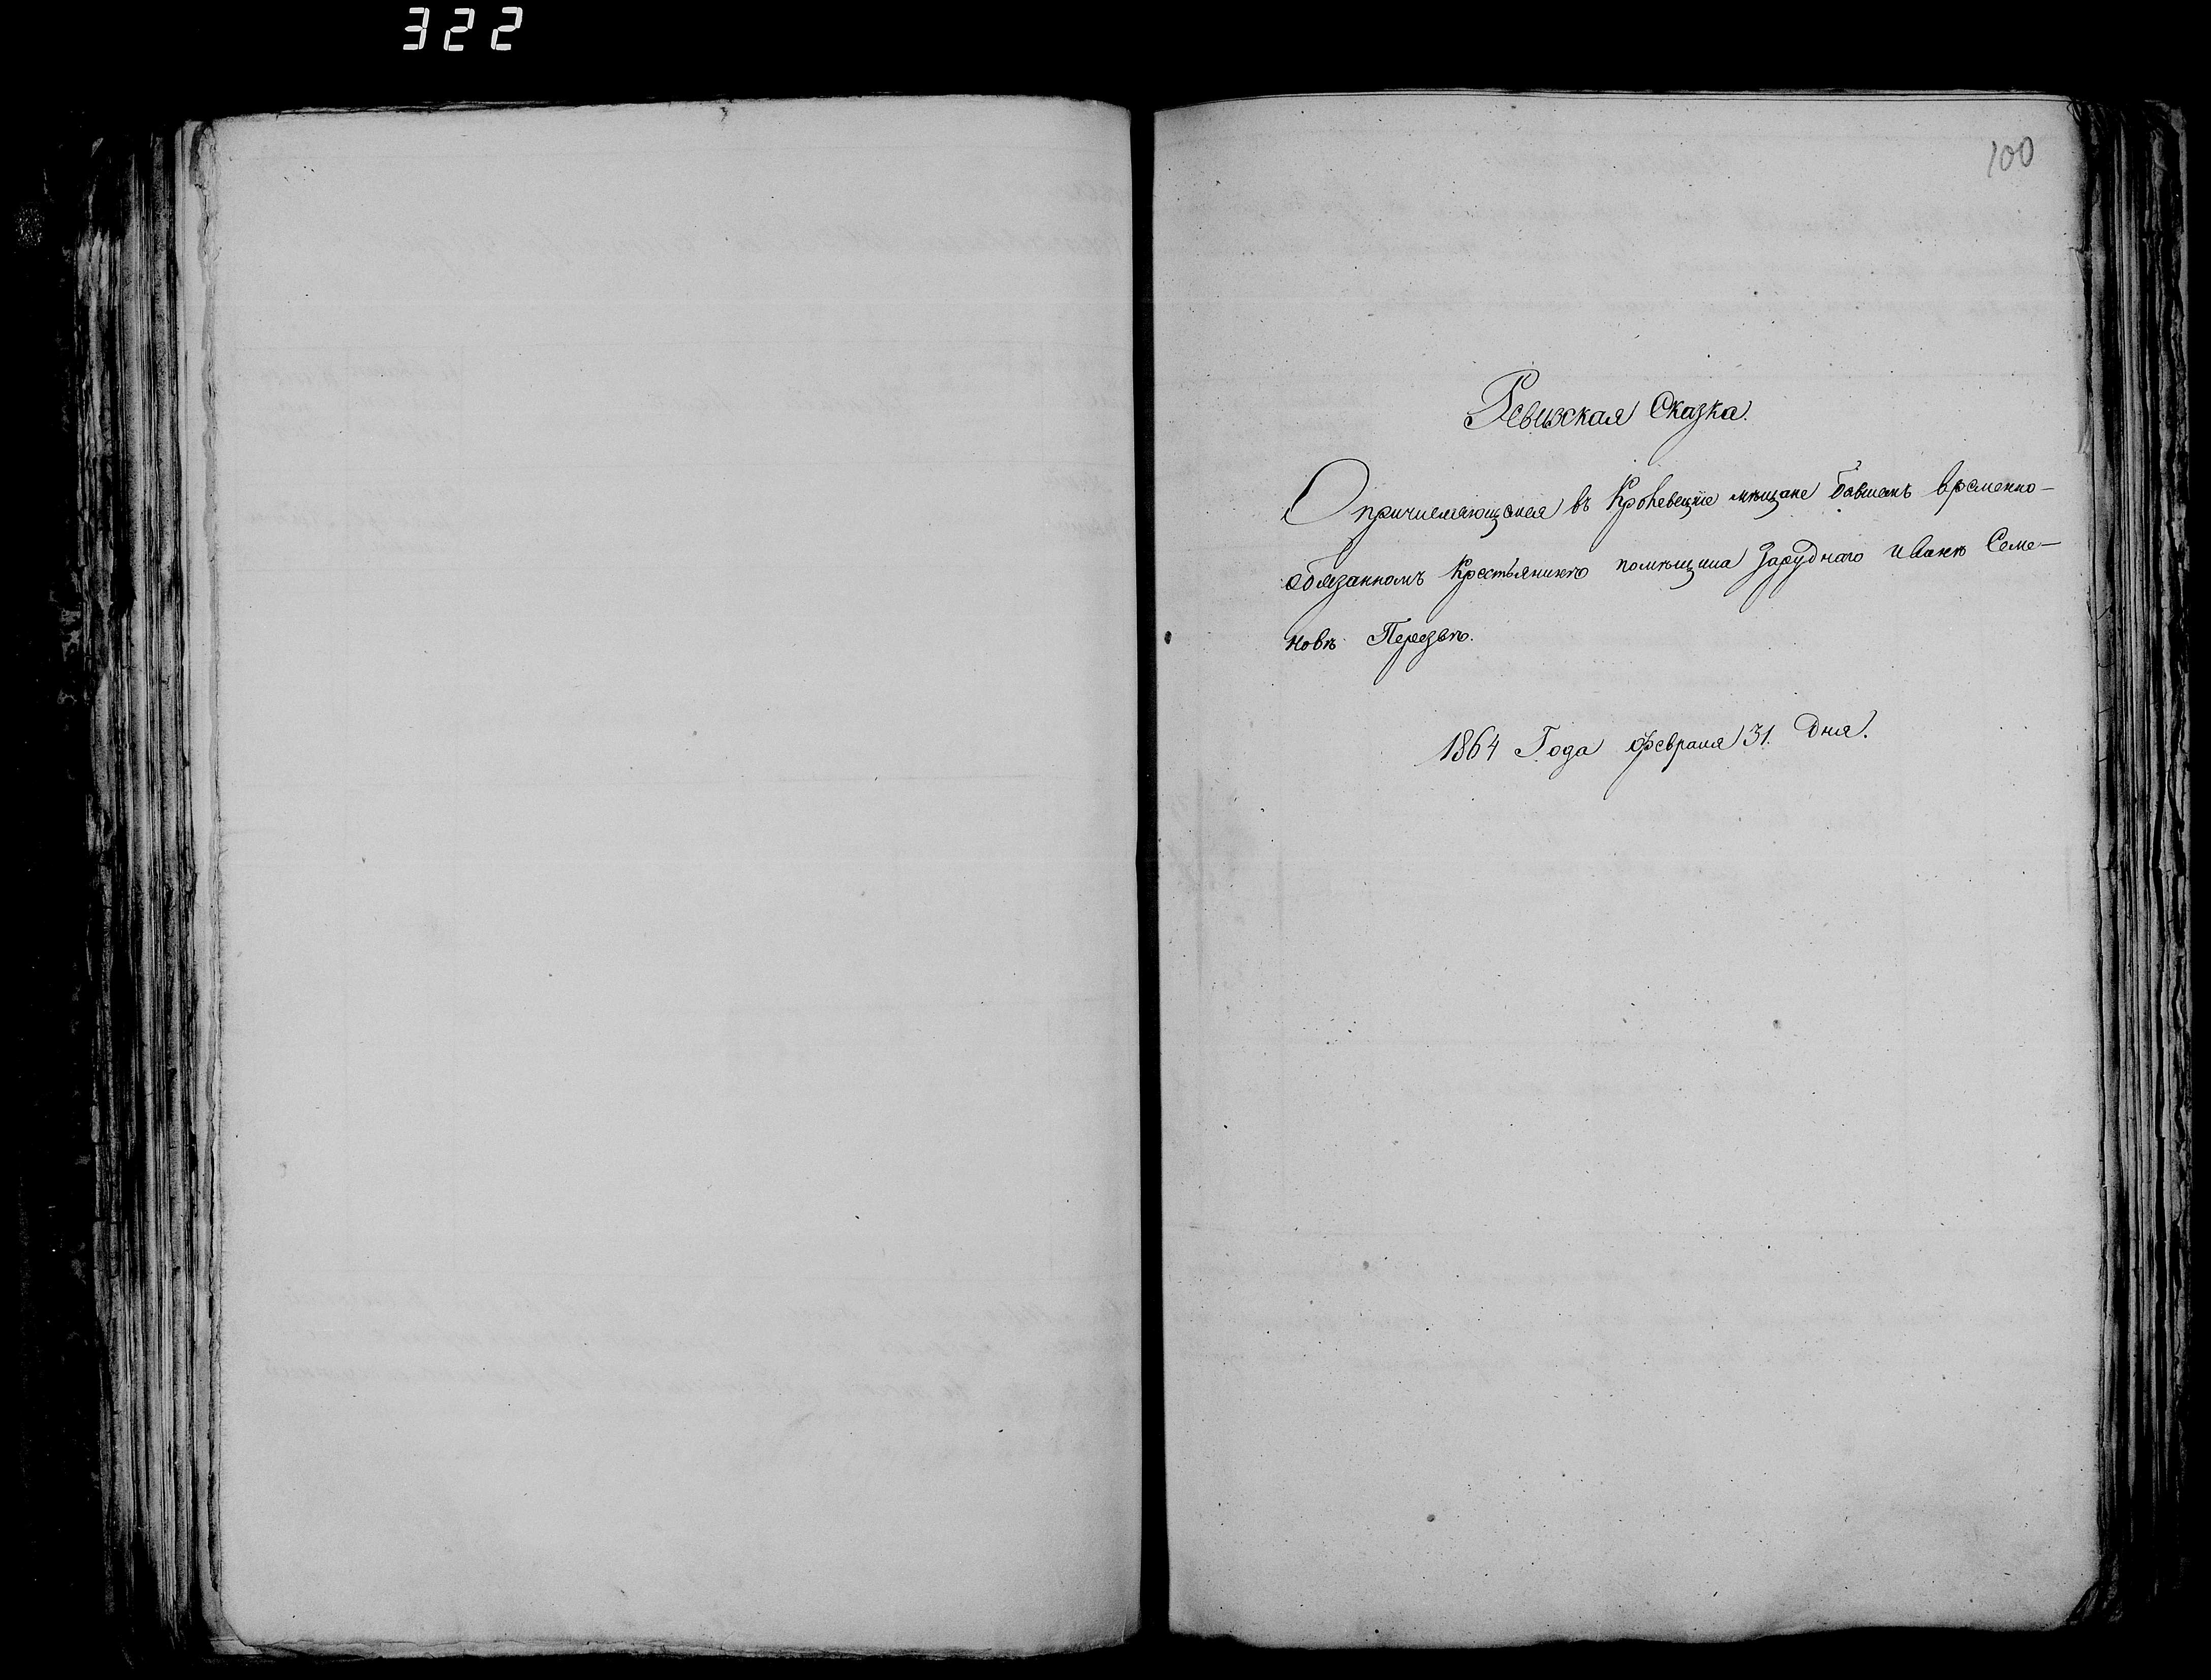 322
100
Ревизская Сказка.
О причисляющемся въ Кролевецкіе мѣщане бывшемъ временно-
обязанномъ крестьянинѣ помѣщика Заруднаго Иванѣ Семе-
новѣ
1864 Года Февраля 31. Дня.